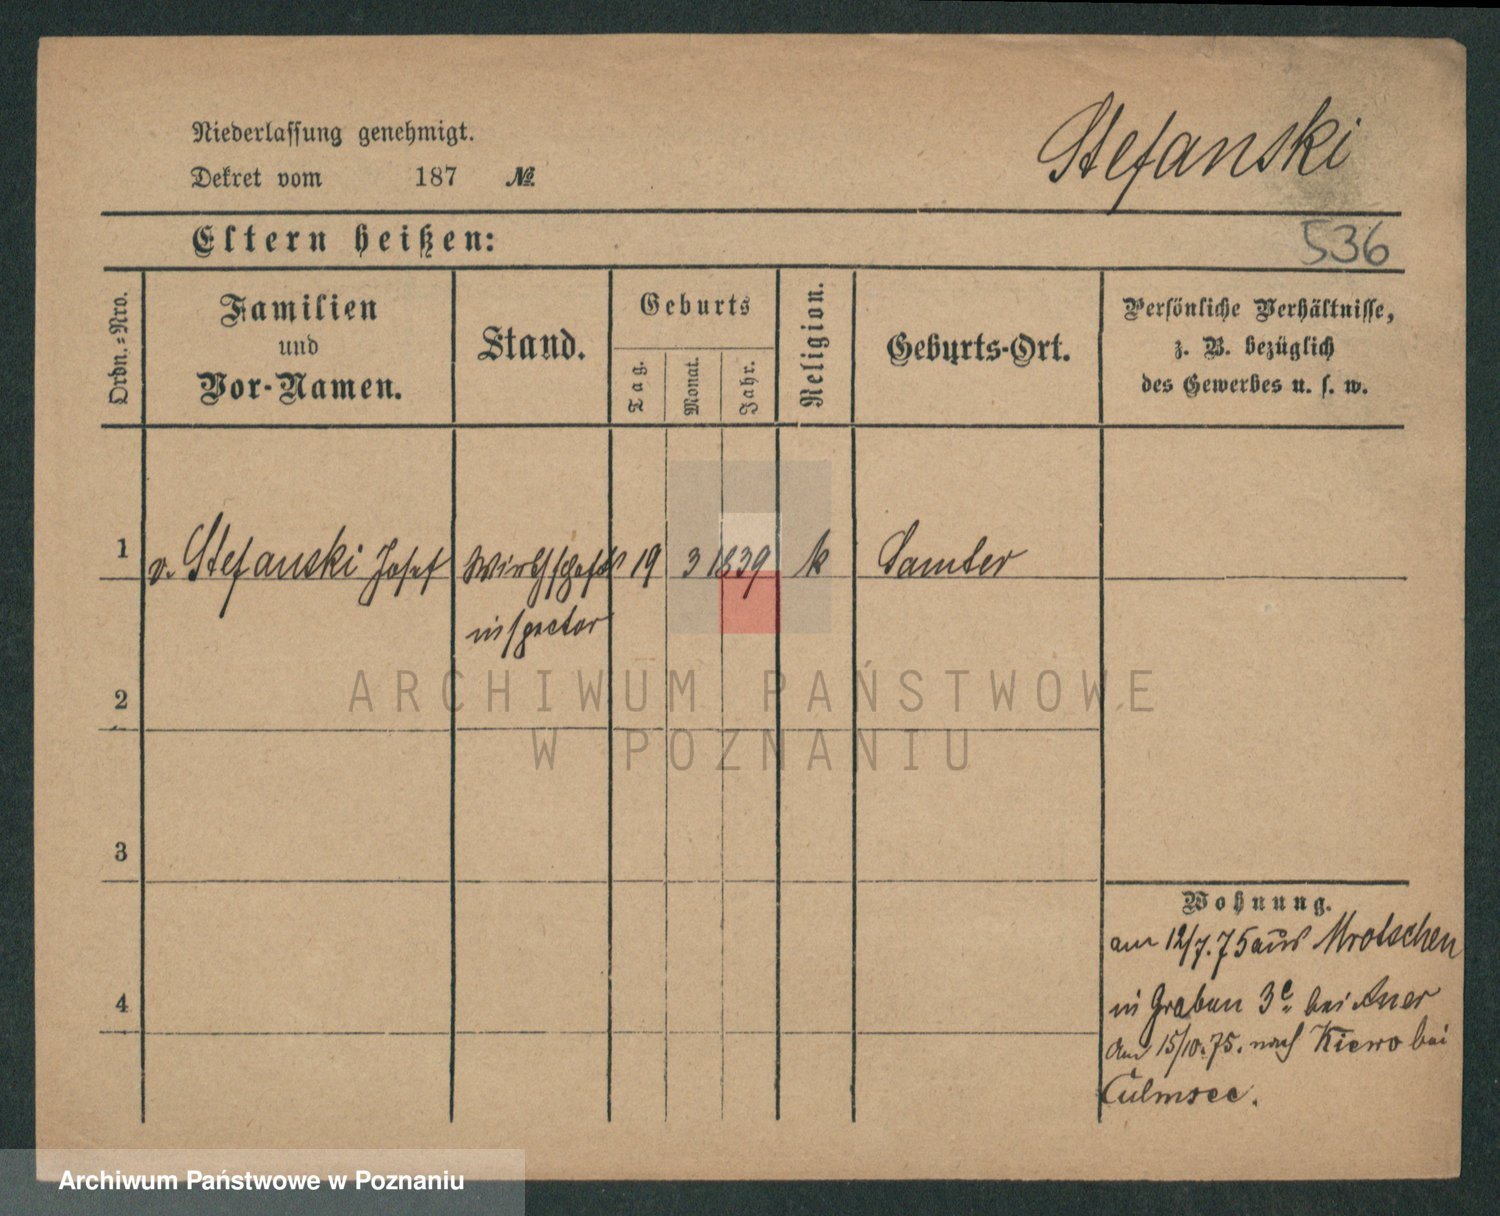 Niederlassung genehmigt.
Dekret vom 187 №
Stefanski
Eltern heißen:
536
Ordn.=Nro.
Familien
und
Vor-Namen.
Stand.
Geburts
Tag.
Monat.
Jahr.
Religion.
Geburts-Ort.
Persönliche Verhältnisse,
z. B. bezüglich
des Gewerbes u. s. w.
1 v. Stefanski Josef Wirthschafts 19 3 1839 k Samter
inspector
2
3
4
Wohnung.
am 12/7. 75 aus Mrotschen
in Graben 3c bei Auer
am 15/10. 75. nach Kiewo bei
Culmsee.
ARCHIWUM PAŃSTWOWE
W POZNANIU
Archiwum Państwowe w Poznaniu